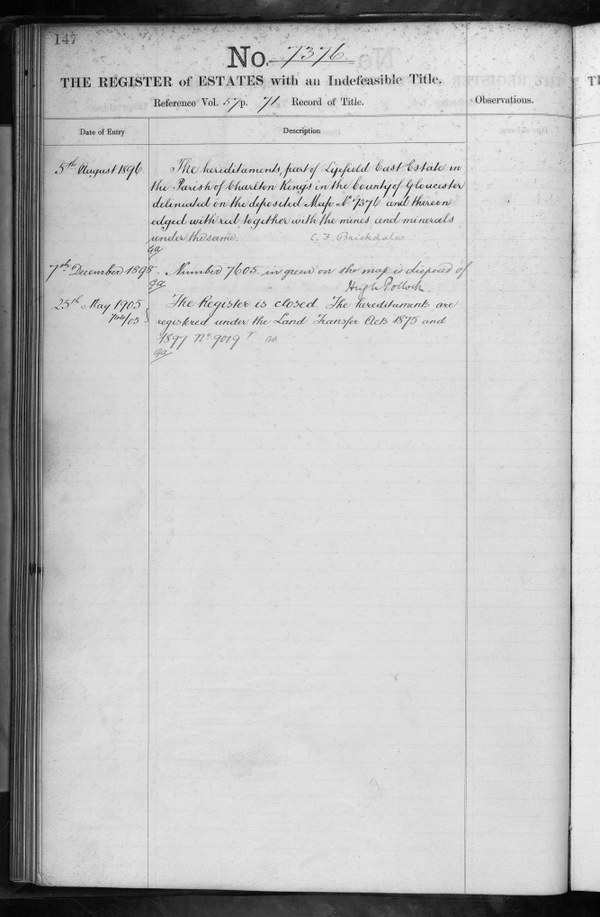 147
No. 7376
THE REGISTER of ESTATES with an Indefeasible Title.
Reference Vol. 57 p. 71 Record of Title.
Observations.
Date of Entry
Description
5th August 1896
The hereditaments, part of Lyefield East Estate in
the Parish of Charlton Kings in the County of Gloucester
delineated on the deposited Map No 7376 and thereon
edged with red together with the mines and minerals
under the same. C. F. Brickdale
7th December 1898. Number 7605 in green on the map is disposed of
Hugh Pollock
25th May 1905
The Register is closed. The hereditaments are
registered under the Land Transfer Acts 1875 and
1897 No 9019